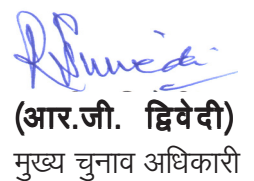 (आर.जी. द्विवेदी)
मुख्य चुनाव अधिकारी